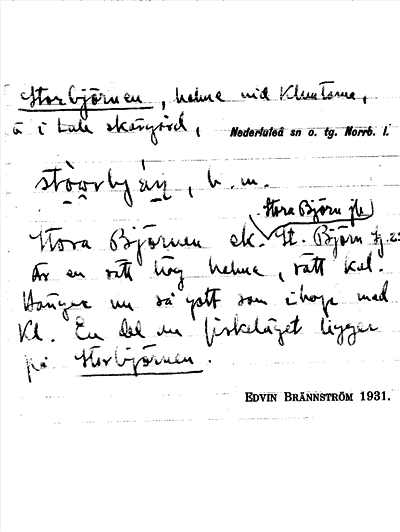 Storbjörnen, holme vid Kluntarna,
ö i Lule skärgård, Nederluleå sn o. tg. Norrb. l.
b. m.
Stora Björn jb
Stora Björnen ek. St. Björn
är en rätt hög holme, rätt kal.
Hänger nu så gott som ihop med
Kl. En del av fiskeläget ligger
på Storbjörnen.
EDVIN BRÄNNSTRÖM 1931.